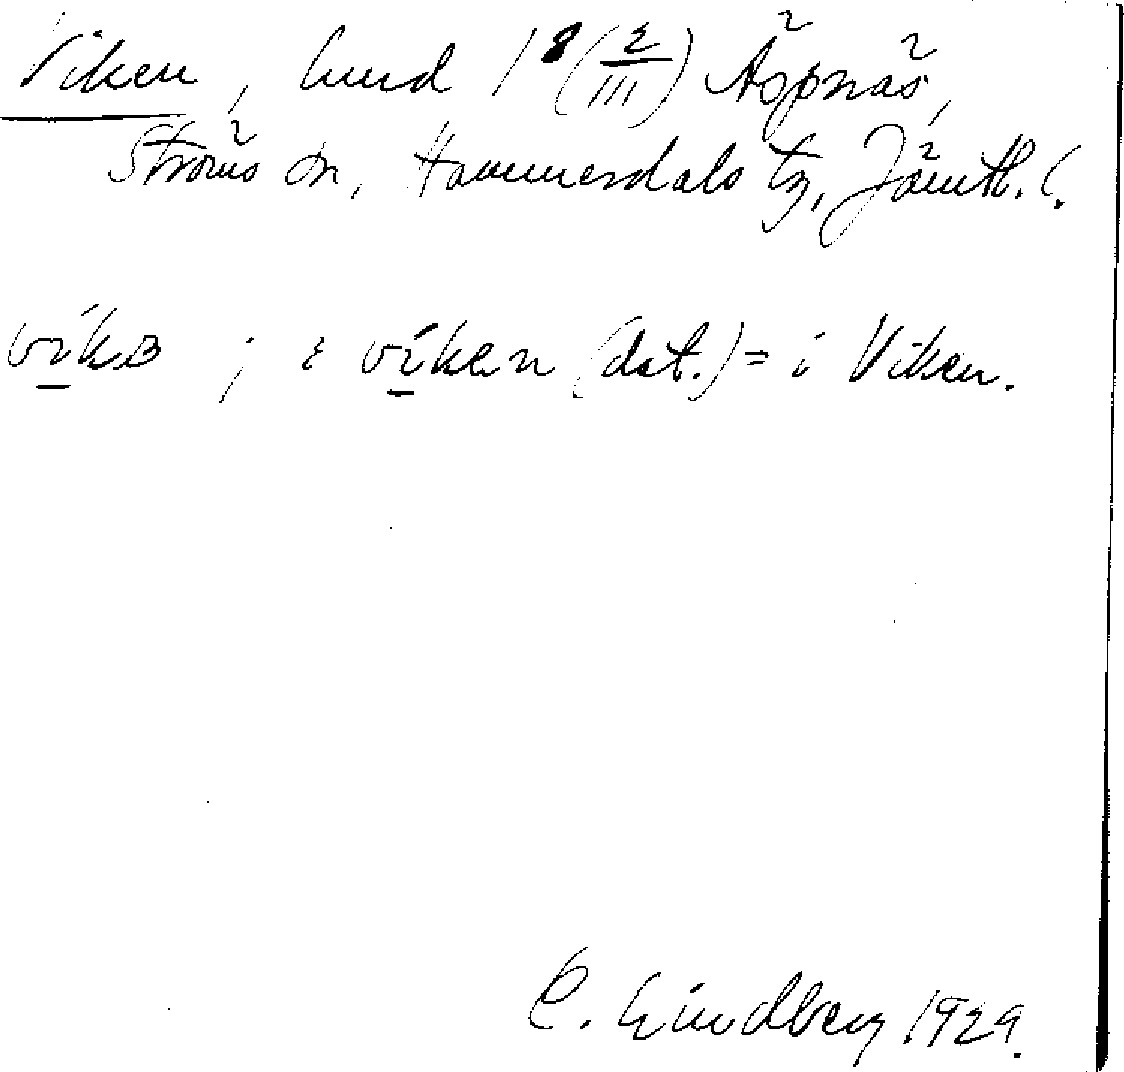 Viken, hmd 1⁸(2/III) Äspnäs,
Ströms sn, Hammerdals tg, Jämtl. l.
vika ; i vikæn (dat.) = i Viken.
C. Lindberg 1929.